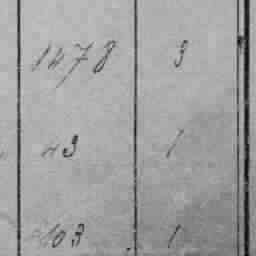 1478 3
43 1
403 1